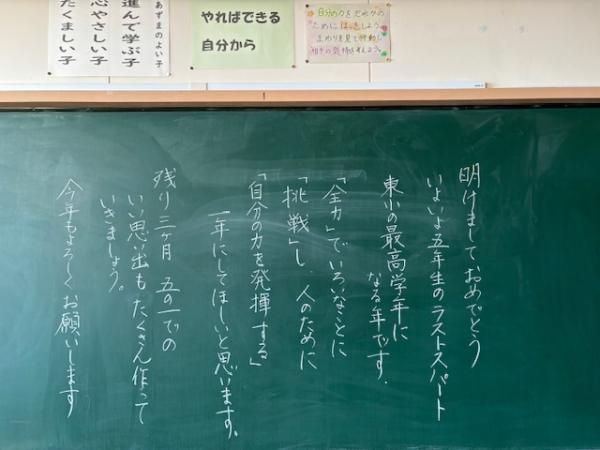 あずまのよい子
進んで学ぶ子
心やさしい子
たくましい子
やればできる
自分から
自分の力をだれかの
ためにはっきしよう
まわりを見て行動し
相手の気持ちを考えよう。
明けましておめでとう
いよいよ五年生のラストスパート
東小の最高学年に
なる年です.
「全力」でいろいろなことに
「挑戦」し、人のために
「自分の力を発揮する」
一年にしてほしいと思います。
残り三ヶ月 五の一での
いい思い出も たくさん作って
いきましょう。
今年もよろしくお願いします